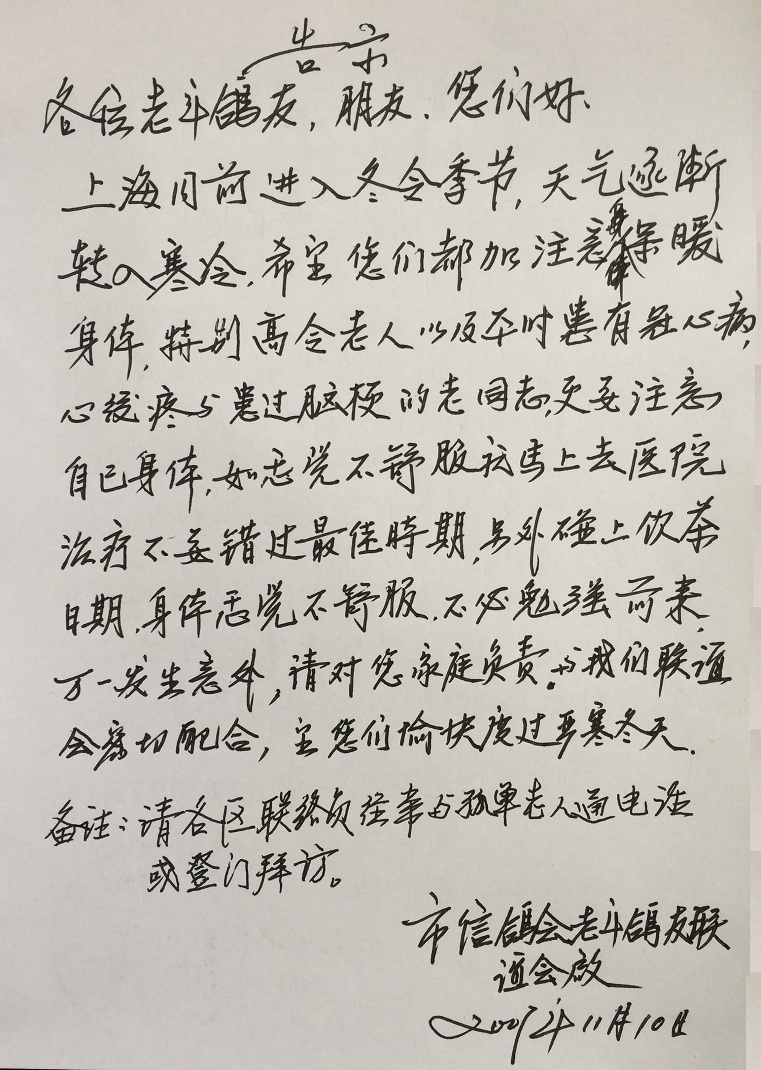 告示
各位老年鸽友,朋友.您们好.
上海目前进入冬令季节,天气逐渐
转入寒冷.希望您们都加注意身体保暖
身体,特别高令老人以及平时患有冠心病,
心绞疼与患过脑梗的老同志,更要注意
自已身体,如感觉不舒服就马上去医院
治疗不要错过最佳時期,另外碰上饮茶
日期.身体感觉不舒服.不必勉强前来.
万一发生意外,请对您家庭负责.与我们联谊
会密切配合,望您们愉快度过严寒冬天.
备注:请各区联络员往常与孤单老人通电话
或登门拜访。
市信鸽会老年鸽友联
谊会啟
年11月10日